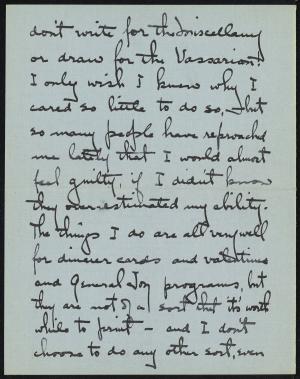 don't write for the Miscellany
or draw for the Vassarian.
I only wish I knew why I
cared so little to do so, – but
so many people have reproached
me lately that I would almost
feel guilty, if I didn't know
they over-estimated my ability.
The things I do are all very well
for dinner cards and valentines
and General Joy programs, but
they are not of a sort that it's worth
while to print – and I don't
choose to do any other sort, even